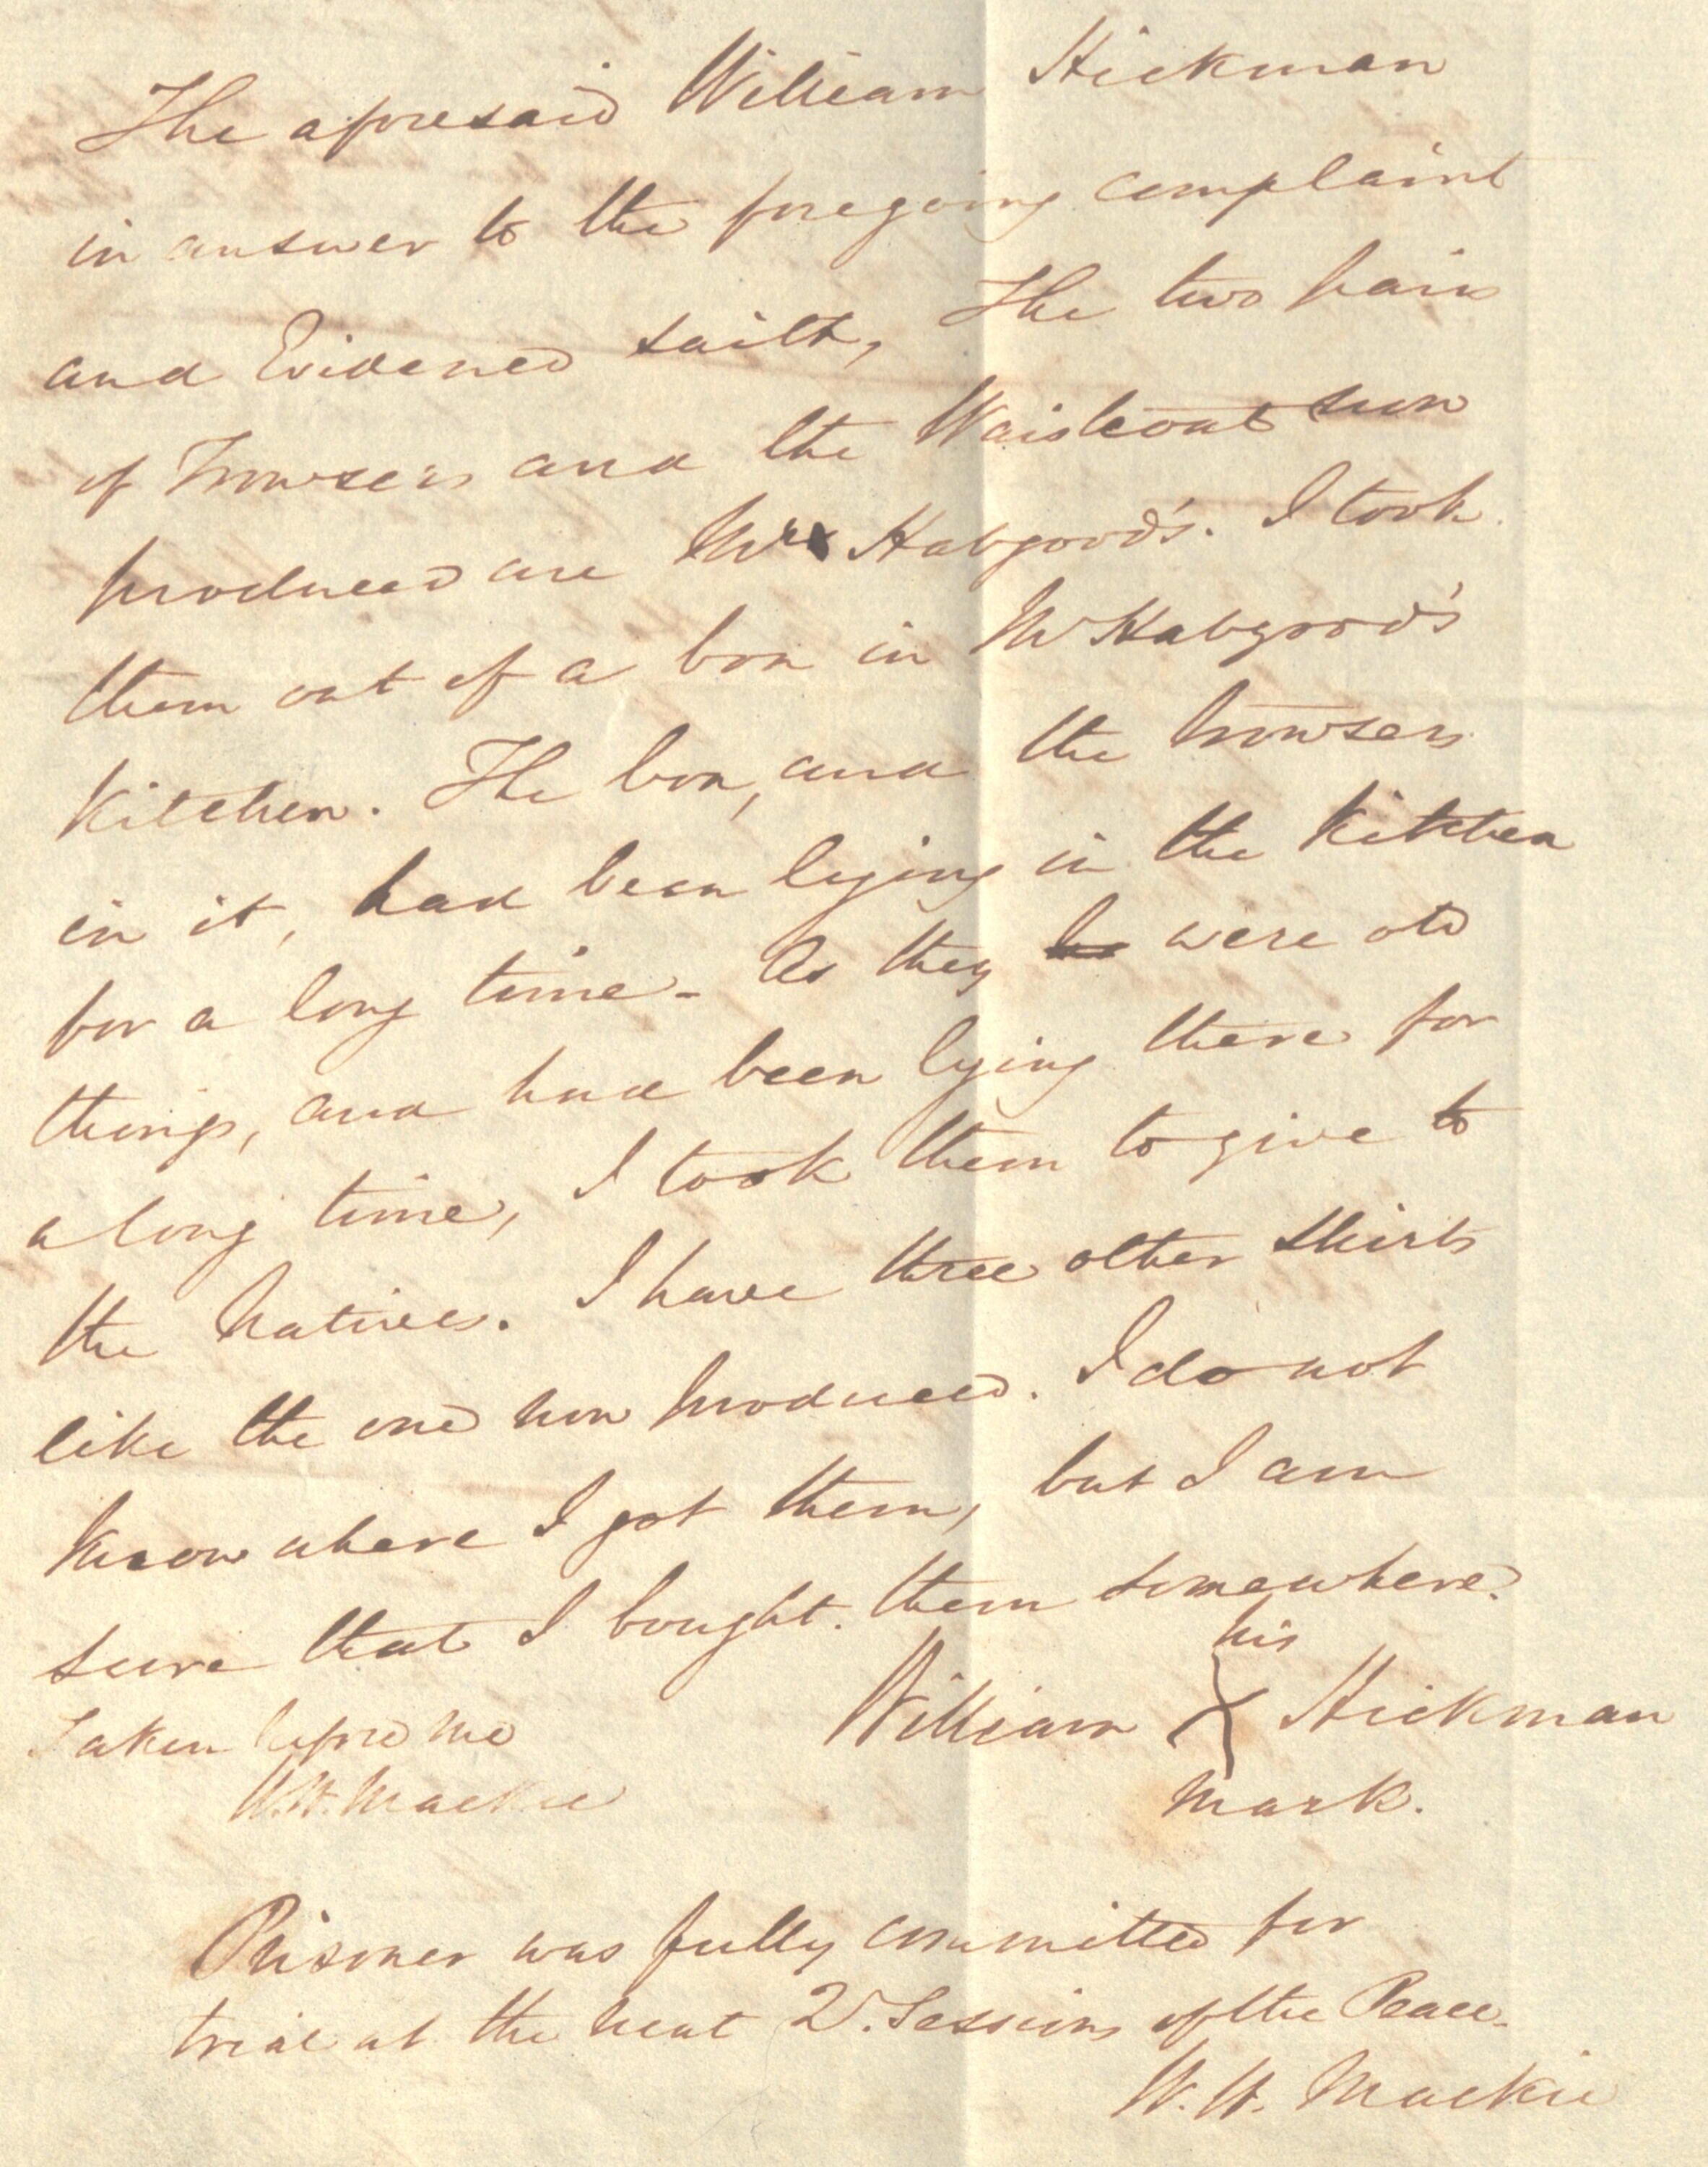 The aforesaid William Hickman
in answer to the foregoing complaint
and Evidence saith, The two pairs
of Trowsers and the Waistcoat now
produced are Mr Habgood's. I took
them out of a box in Mr Habgood's
Kitchen. The box, and the trowsers
in it, had been lying in the Kitchen
for a long time - As they were old
things, and had been lying there for
a long time, I took them to give to
the Natives. I have three other shirts
like the one now produced. I do not
know where I got them, but I am
sure that I bought them somewhere.
his
William X Hickman
mark.
Taken before me
W.H. Mackie
Prisoner was fully committed for
trial at the next Q. Sessions of the Peace.
W. H. Mackie